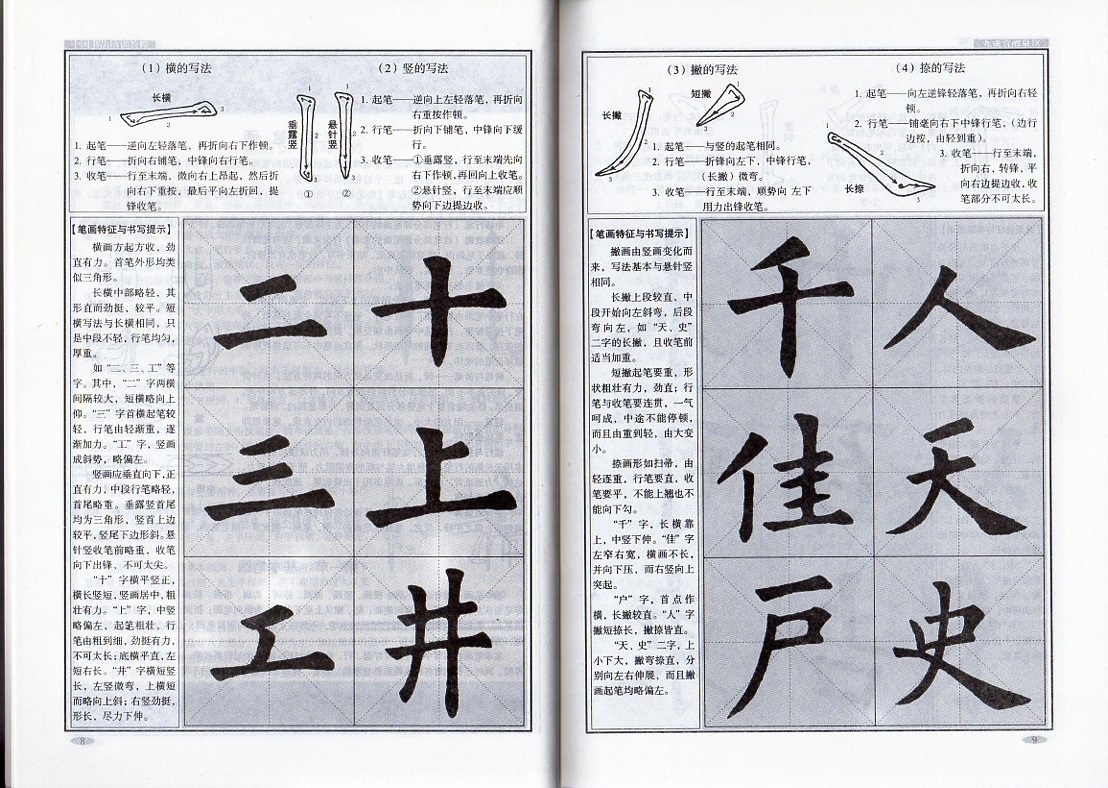 （1）横的写法
长横
1
2
3
1. 起笔——逆向左轻落笔，再折向右下作顿。
2. 行笔——折向右铺笔，中锋向右行笔。
3. 收笔——行至末端，微向右上昂起，然后折
向右下重按，最后平向左折回，提
锋收笔。
（2）竖的写法
垂露竖
悬针竖
①
②
1. 起笔——逆向上左轻落笔，再折向
右重按作顿。
2. 行笔——折向下铺笔，中锋向下缓
行。
3. 收笔——①垂露竖，行至末端先向
右下作顿，再回向上收笔。
②悬针竖，行至末端应顺
势向下边提边收。
【笔画特征与书写提示】
横画方起方收，劲
直有力。首笔外形均类
似三角形。
长横中部略轻，其
形直而劲挺，较平。短
横写法与长横相同，只
是中段不轻，行笔均匀，
厚重。
如“二、三、工”等
字。其中，“二”字两横
间隔较大，短横略向上
仰。“三”字首横起笔较
轻，行笔由轻渐重，逐
渐加力。“工”字，竖画
成斜势，略偏左。
竖画应垂直向下，正
直有力，中段行笔略轻，
首尾略重。垂露竖首尾
均为三角形，竖首上边
较平，竖尾下边形斜。悬
针竖收笔前略重，收笔
向下出锋，不可太尖。
“十”字横平竖正，
横长竖短，竖画居中，粗
壮有力。“上”字，中竖
略偏左，起笔粗壮，行
笔由粗到细，劲挺有力，
不可太长；底横平直，左
短右长。“井”字横短竖
长，左竖微弯，上横短
而略向上斜；右竖劲挺，
形长，尽力下伸。
二 十
三 上
工 井
8
（3）撇的写法
长撇
短撇
1. 起笔——与竖的起笔相同。
2. 行笔——折锋向左下，中锋行笔，
（长撇）微弯。
3. 收笔——行至末端，顺势向 左下
用力出锋收笔。
（4）捺的写法
长捺
1. 起笔——向左逆锋轻落笔，再折向右轻
顿。
2. 行笔——铺毫向右下中锋行笔，（边行
边按，由轻到重）。
3. 收笔——行至末端，
折向右，转锋，平
向右边提边收，收
笔部分不可太长。
【笔画特征与书写提示】
撇画由竖画变化而
来，写法基本与悬针竖
相同。
长撇上段较直，中
段开始向左斜弯，后段
弯向左，如“天、史”
二字的长撇，且收笔前
适当加重。
短撇起笔要重，形
状粗壮有力，劲直；行
笔与收笔要连贯，一气
呵成，中途不能停顿，
而且由重到轻，由大变
小。
捺画形如扫帚，由
轻逐重，行笔要直，收
笔要平，不能上翘也不
能向下勾。
“千”字，长横靠
上，中竖下伸。“佳”字
左窄右宽，横画不长，
并向下压，而右竖向上
突起。
“户”字，首点作
横，长撇较直。“人”字
撇短捺长，撇捺皆直。
“天、史”二字，上
小下大，撇弯捺直，分
别向左右伸展，而且撇
画起笔均略偏左。
千 人
佳 天
户 史
9